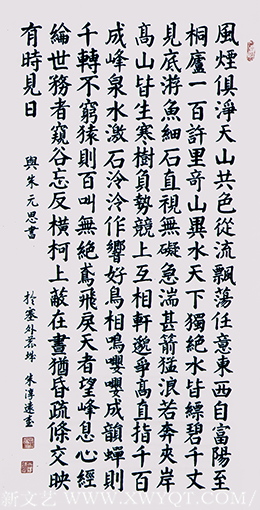 風煙俱淨天山共色從流飄蕩任意東西自富陽至
桐廬一百許里奇山異水天下獨絕水皆縹碧千丈
見底游魚細石直視無礙急湍甚箭猛浪若奔夾岸
髙山皆生寒樹負勢競上互相軒邈爭髙直指千百
成峰泉水激石泠泠作響好鳥相鳴嚶嚶成韻蟬則
千轉不窮猿則百叫無絕鳶飛戾天者望峰息心經
綸世務者窺谷忘反橫柯上蔽在晝猶昏疏條交映
有時見日
與朱元思書
於塞外 朱淳遠書
新文艺 WWW.XWYQT.COM/